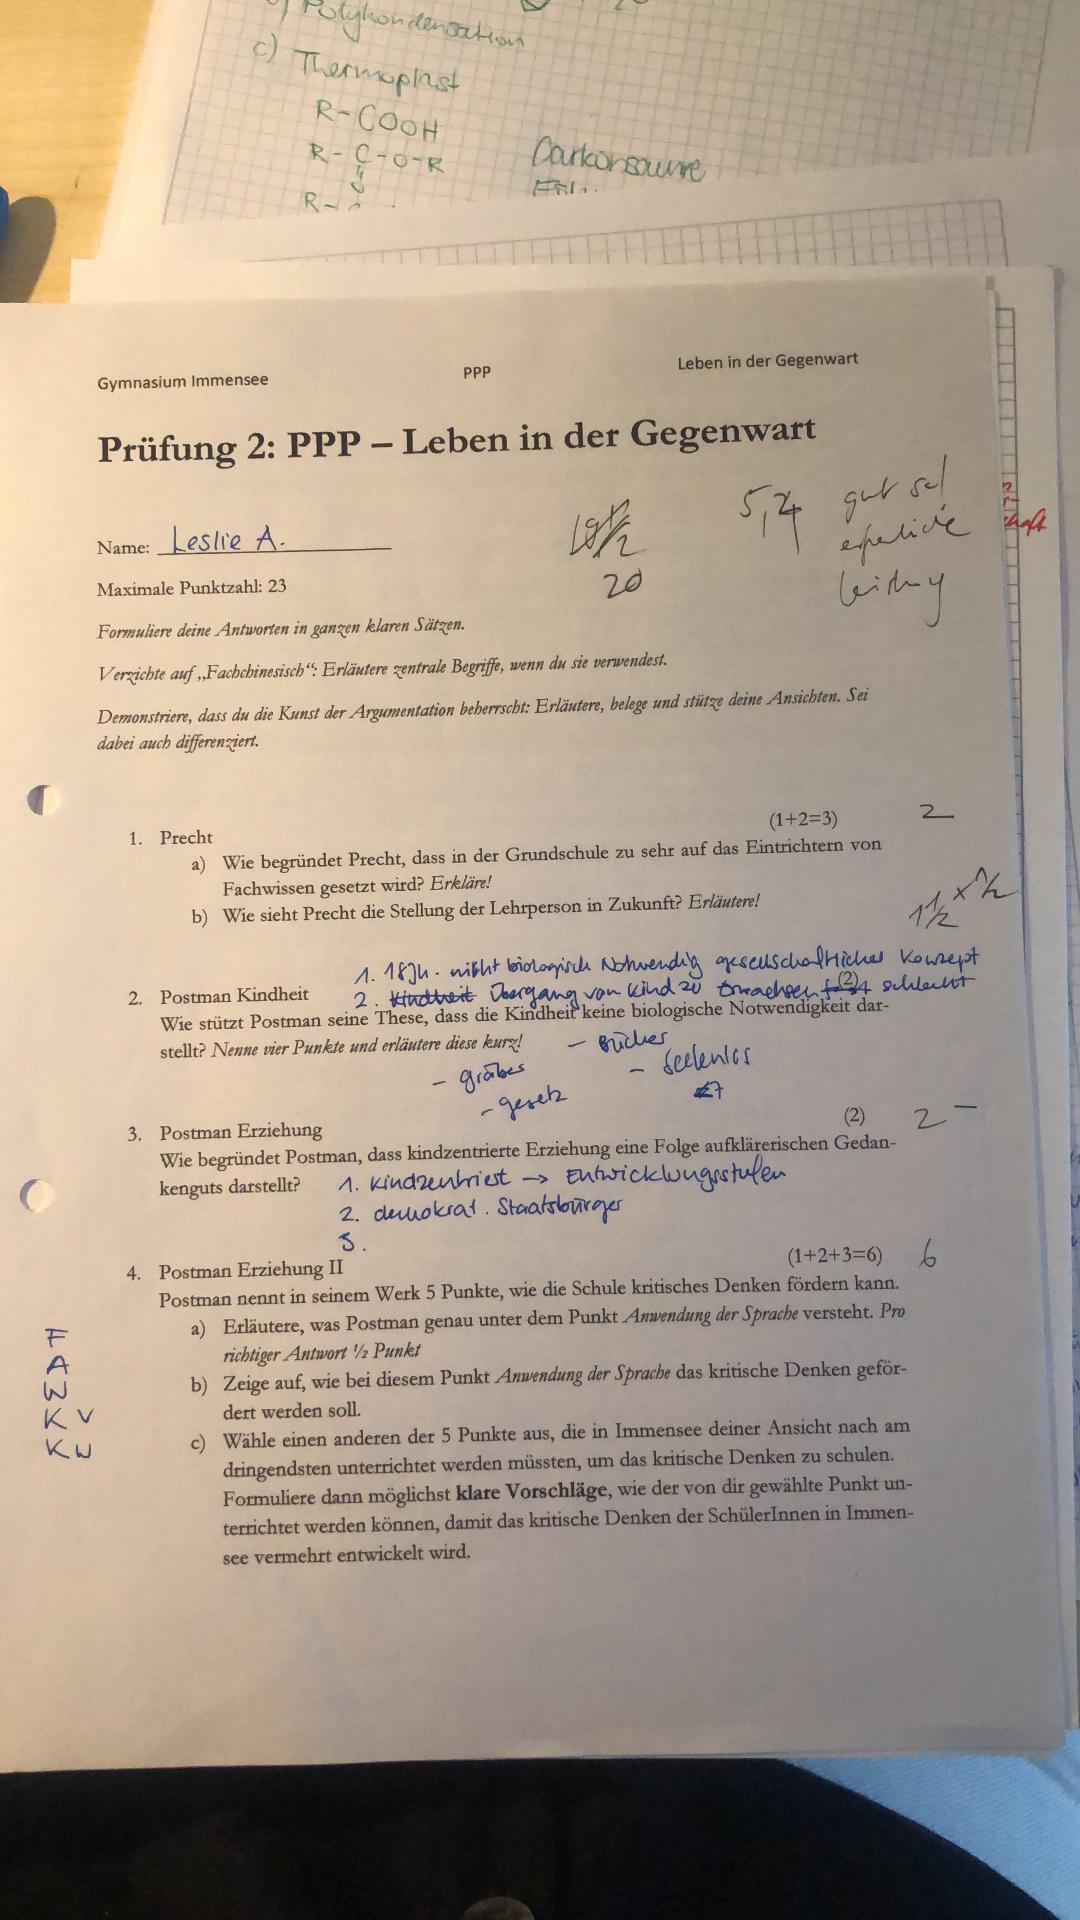 Polykondensation
c) Thermoplast
R-COOH
R-C-O-R
R-
Gymnasium Immensee PPP Leben in der Gegenwart
Prüfung 2: PPP – Leben in der Gegenwart
Name: Leslie A.
20
5,4 gut
Maximale Punktzahl: 23
Formuliere deine Antworten in ganzen klaren Sätzen.
Verzichte auf „Fachchinesisch“: Erläutere zentrale Begriffe, wenn du sie verwendest.
Demonstriere, dass du die Kunst der Argumentation beherrscht: Erläutere, belege und stütze deine Ansichten. Sei
dabei auch differenziert.
1. Precht (1+2=3) 2
a) Wie begründet Precht, dass in der Grundschule zu sehr auf das Eintrichtern von
Fachwissen gesetzt wird? Erkläre!
b) Wie sieht Precht die Stellung der Lehrperson in Zukunft? Erläutere!
1 1/2
1. 18Jh. nicht biologisch Notwendig gesellschaftliches Konzept
2. Postman Kindheit (2)
2. Kindheit Übergang von Kind zu Erwachsen schlecht
Wie stützt Postman seine These, dass die Kindheit keine biologische Notwendigkeit dar-
stellt? Nenne vier Punkte und erläutere diese kurz!
- Bücher
- gräber
- Seelenlos
- gesetz
3. Postman Erziehung (2) 2-
Wie begründet Postman, dass kindzentrierte Erziehung eine Folge aufklärerischen Gedan-
kenguts darstellt?
1. kindzentriest → Entwicklungsstufen
2. demokrat. Staatsbürger
3.
4. Postman Erziehung II (1+2+3=6) 6
Postman nennt in seinem Werk 5 Punkte, wie die Schule kritisches Denken fördern kann.
a) Erläutere, was Postman genau unter dem Punkt Anwendung der Sprache versteht. Pro
richtiger Antwort ½ Punkt
b) Zeige auf, wie bei diesem Punkt Anwendung der Sprache das kritische Denken geför-
dert werden soll.
c) Wähle einen anderen der 5 Punkte aus, die in Immensee deiner Ansicht nach am
dringendsten unterrichtet werden müssten, um das kritische Denken zu schulen.
Formuliere dann möglichst klare Vorschläge, wie der von dir gewählte Punkt un-
terrichtet werden können, damit das kritische Denken der SchülerInnen in Immen-
see vermehrt entwickelt wird.
F
A
W
K V
K W